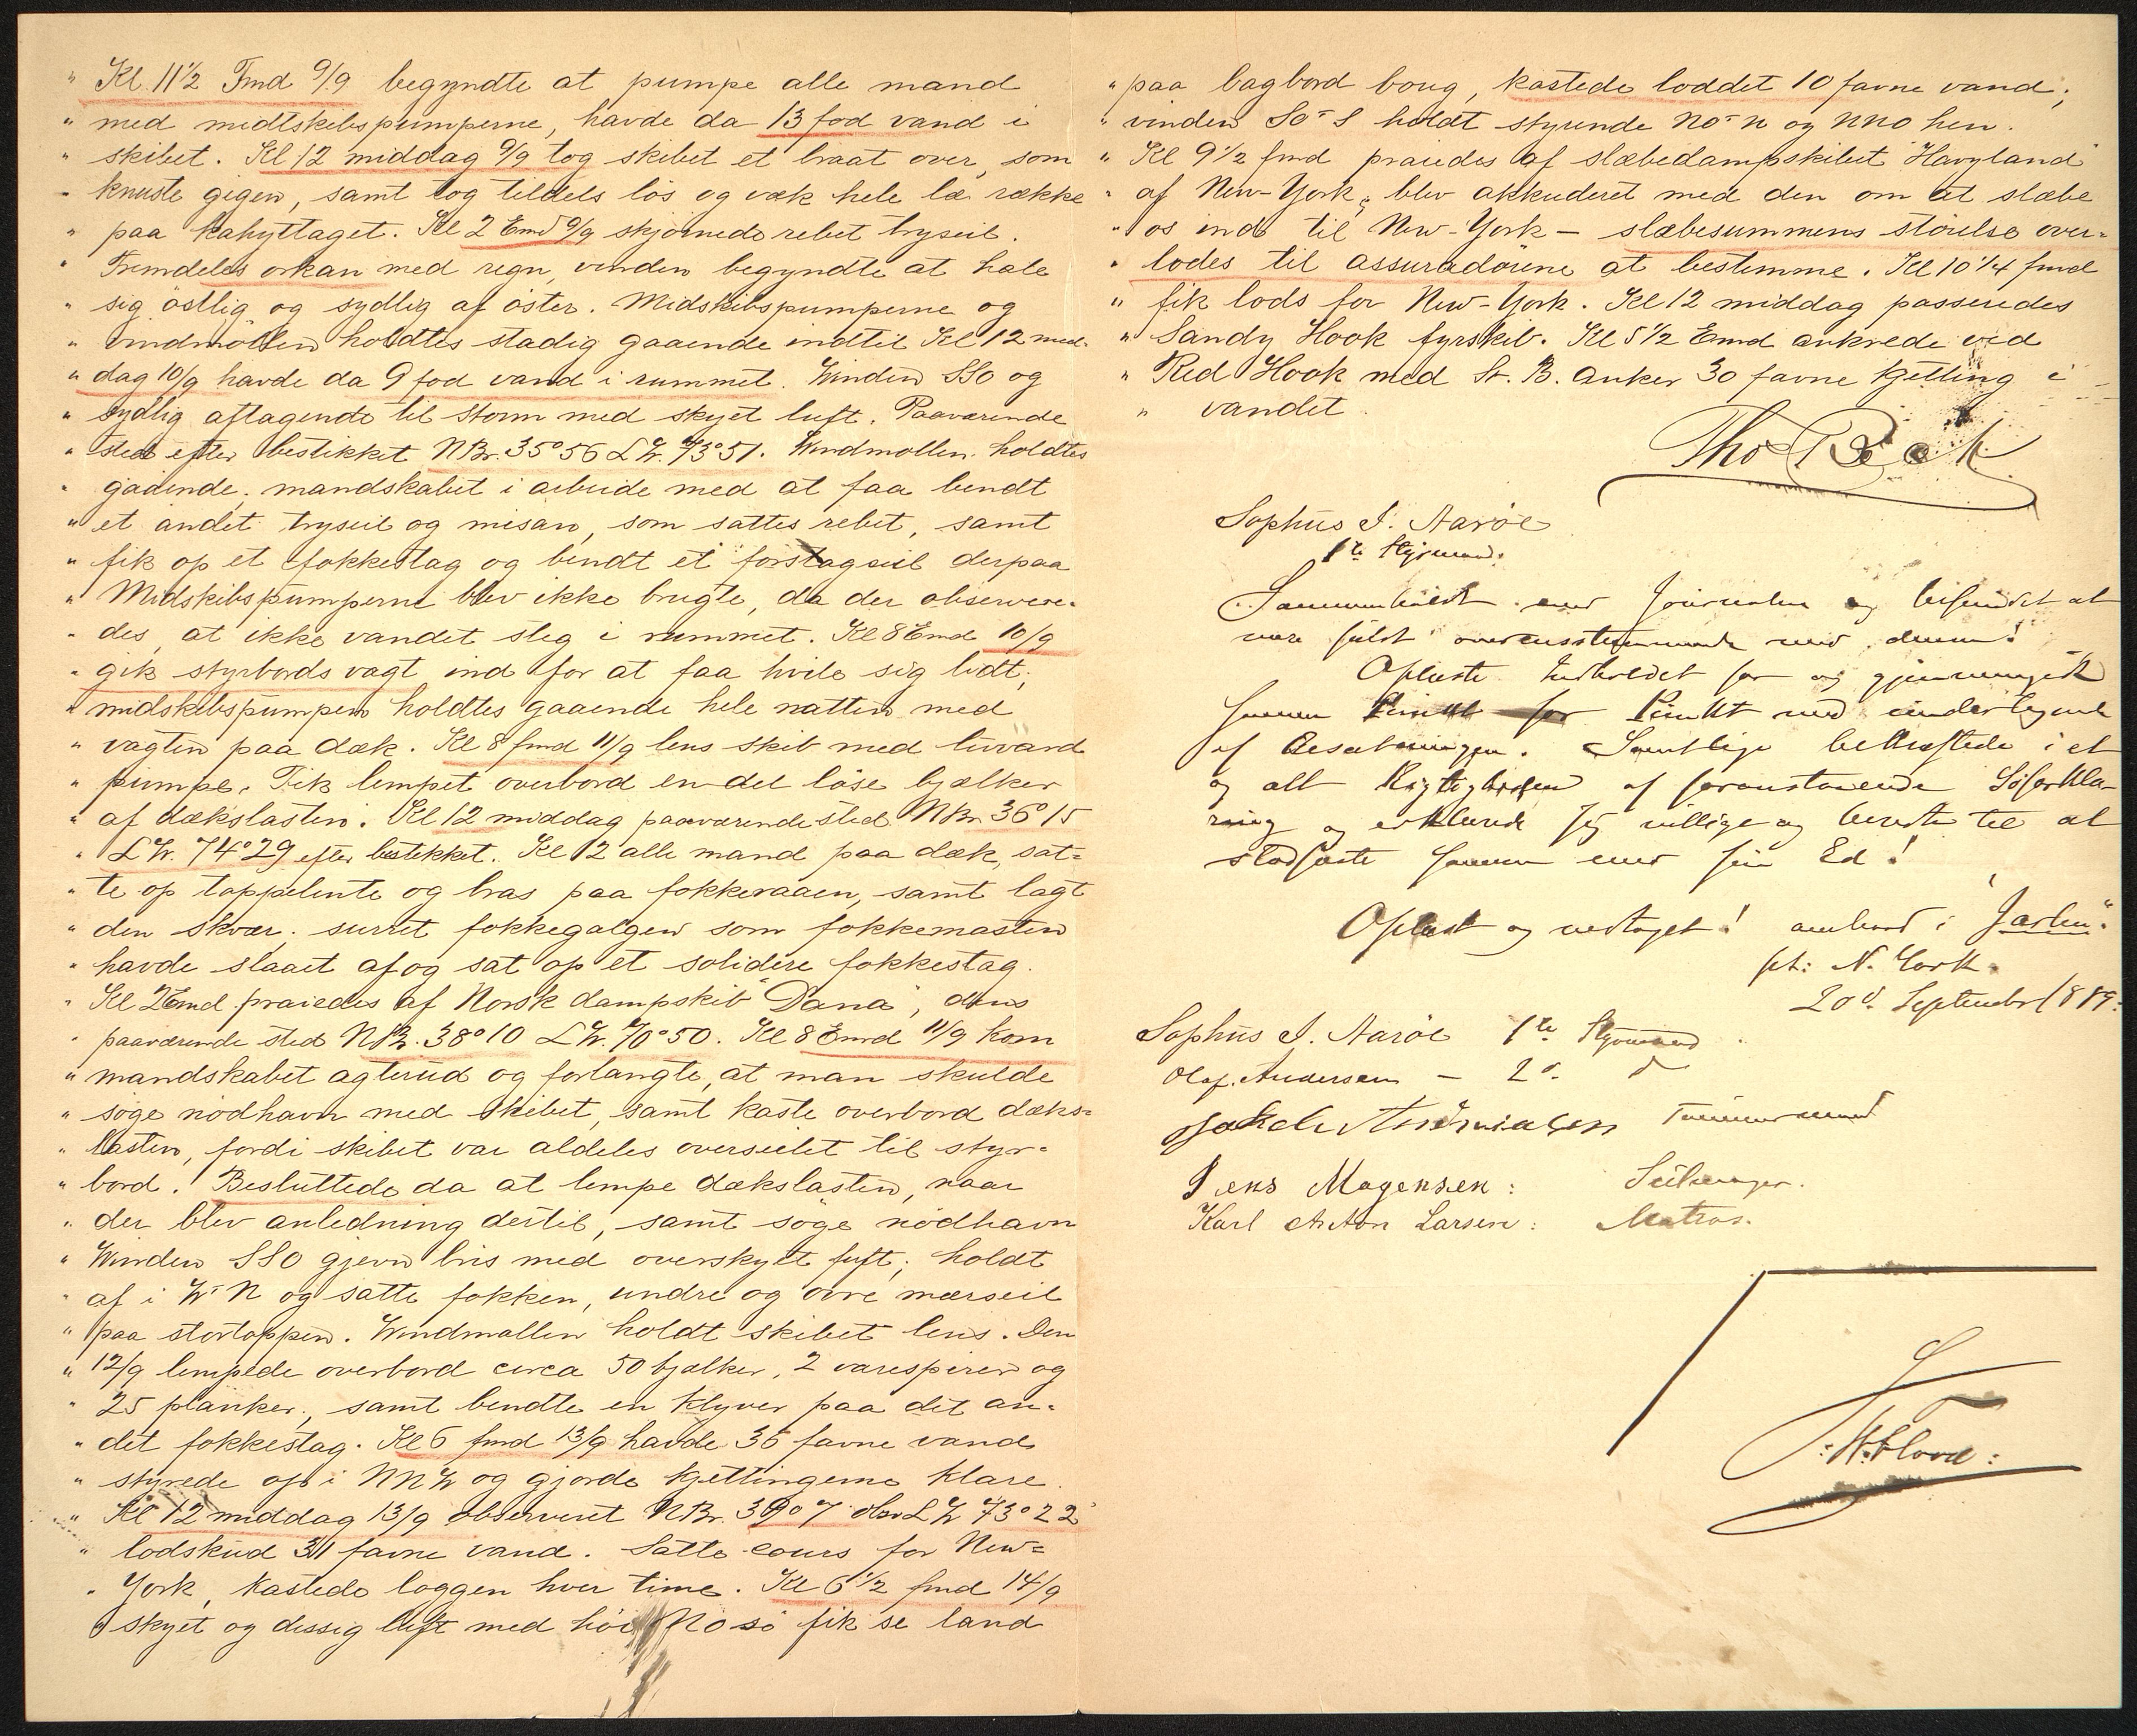 " Kl. 11½ Fmd 9/9 begyndte at pumpe alle mand
" med midtskibspumperne, havde da 13 fod vand i
" skibet. Kl 12 middag 9/9 tog skibet et braat over, som
" knuste gigen, samt tog tildels lös og væk hele læ række
" paa kahyttaget. Kl 2 Emd 9/9 skjörnede rebet tryseil.
" Fremdeles orkan med regn, vinden begyndte at hale
" sig östlig og sydlig af öster. Midskibspumperne og
" vindmöllen holdtes stadig gaaende indtil Kl 12 mid-
" dag 10/9 havde da 9 fod vand i rummet. Winden SSO og
" sydlig aftagende til storm med skyet luft. Paaværende
" sted efter bestikket NBr. 35°56 LW. 73°51. Windmøllen holdtes
" gaaende, mandskabet i arbeide med at faa bendt
" et andet tryseil og misan, som sattes rebet, samt
" fik op et fokkestag og bendt et forstagseil derpaa
" Midskibspumperne blev ikke brugte, da der observere-
" des, at ikke vandet steg i rummet. Kl 8 Emd 10/9
" gik styrbords vagt ind for at faa hvile sig lidt;
" midskibspumpen holdtes gaaende hele natten med
" vagten paa dæk. Kl 8 fmd 11/9 lens skib med luvard
" pumpe. Fik lempet overbord en del löse bjælker
" af dækslasten. Kl 12 middag paaværende sted NBr. 36°15
" LW. 74°29 efter bestikket. Kl 12 alle mand paa dæk, sat=
" te op toppelente og bras paa fokkeraaen, samt lagt
" den skvær, surret fokkegalgen som fokkemasten
" havde slaaet af og sat op et solidere fokkestag.
" Kl 2 Emd praiedes af Norsk dampskib "Dana", dens
" paaværende sted NBr. 38°10 LW. 70°50. Kl 8 Emd 11/9 kom
" mandskabet agterud og forlangte, at man skulde
" söge nödhavn med skibet, samt kaste overbord dæks=
" lasten, fordi skibet var aldeles overseilet til styr-
" bord. Besluttede da at lempe dækslasten, naar
" der blev anledning dertil, samt söge nödhavn
" Winden SSO gjevn bris med overskyet luft; holdt
" af i W-N og satte fokken, undre og övre mærseil
" paa stortoppen. Windmøllen holdt skibet lens. Den
" 12/9 lempede overbord circa 50 bjælker, 2 varespirer og
" 25 planker, samt bendte en klyver paa det an-
" det fokkestag. Kl 6 fmd 13/9 havde 36 favne vand
" styrede op i NNW og gjorde kjettingerne klare.
" Kl 12 middag 13/9 observeret NBr. 39°7 obs LW 73°22
" lodskud 31 favne vand. Satte cours for New=
" York, kastede loggen hver time. Kl 6½ fmd 14/9
" skyet og dissig luft med höi NO sö fik se land
" paa bagbord boug, kastede loddet 10 favne vand;
" vinden SO-S holdt styrende NO-N og NNO hen.
" Kl 9½ fmd praiedes af slæbedampskibet "Havyland"
" af New-York; blev akkuderet med den om at slæbe
" os ind til New-York – slæbesummens störelse over=
" lodes til assuradörerne at bestemme. Kl 10¼ fmd
" fik lods for New-York. Kl 12 middag passeredes
" Sandy Hook fyrskib. Kl 5½ Emd ankrede ved
" Red Hook med St. B. anker 30 favne kjetting i
" vandet.
Tho Beck
Sophus J. Aaröe
1te Styrmand.
Sammenholdt med Journalen og befundet at
være fuldt overensstemmende med denne!
Oplæste Indholdet for og gjennemgik
samme Punkt for Punkt med undertegnede
af Besætningen. Samtlige bekræftede i et
og alt Rigtigheden af foranstaaende Söforkla-
ring og erklærede sig villige og berede til at
stadfæste samme med sin Ed!
Oplæst og vedtaget! ombord i "Jarlen".
pt: N. York
20d. September 1889.
Sophus J. Aaröe 1te Styrmand
Olaf. Andersen – 2d. d
Jakob Andreassen Tömmermand
Jens Mogensen: Seilmager.
Karl Anton Larsen: Matros.
: W. Flood :